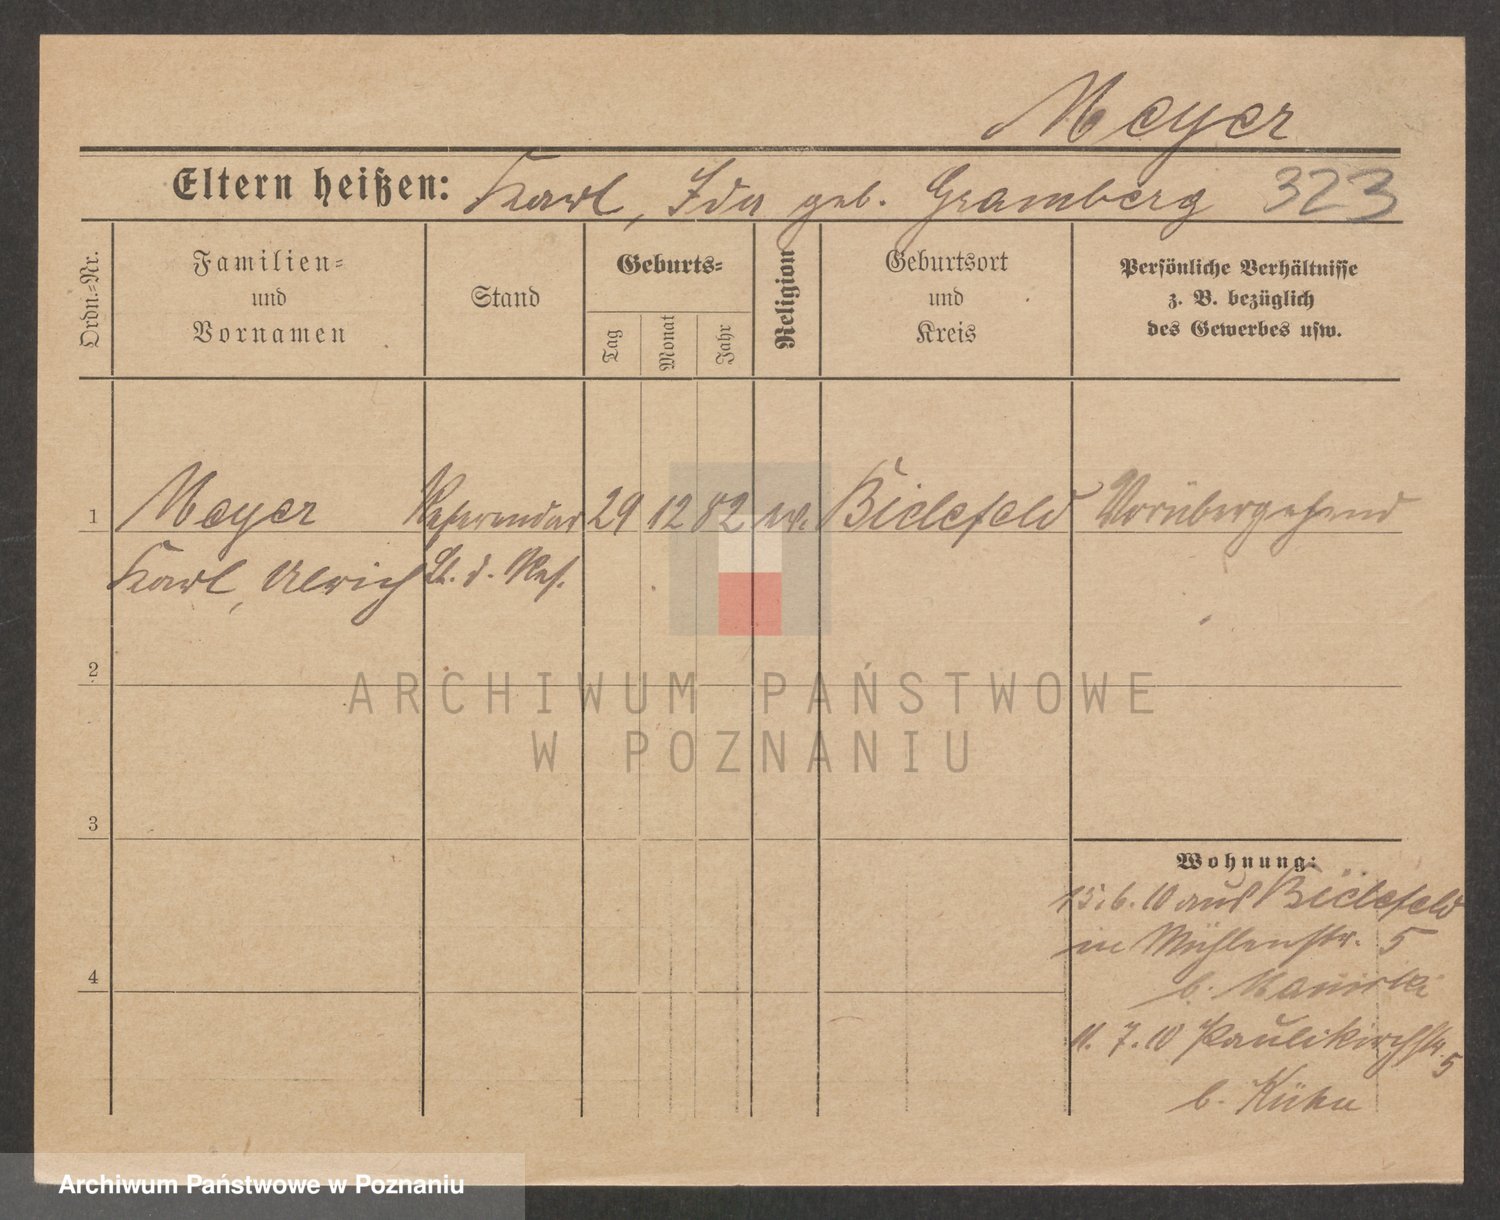 Meyer
Eltern heißen: Karl, Ida geb. Gramberg 323
Ordn.-Nr.
Familien-
und
Vornamen
Stand
Geburts-
Tag
Monat
Jahr
Religion
Geburtsort
und
Kreis
Persönliche Verhältnisse
z. B. bezüglich
des Gewerbes usw.
1 Meyer Referendar 29 12 82 ev. Bielefeld Vorübergehend
Karl, Ulrich Lt. d. Res.
2
3
4
Wohnung:
15.6.10 aus Bielefeld
in Mühlenstr. 5
b.
11.7.10 Paulikirchstr. 5
b. Kühn
ARCHIWUM PAŃSTWOWE
W POZNANIU
Archiwum Państwowe w Poznaniu